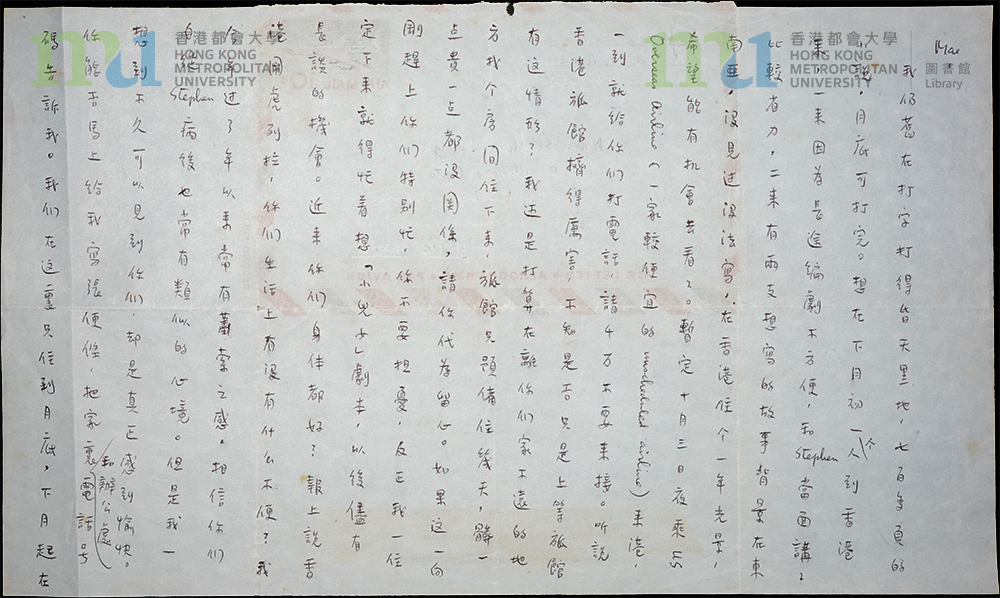 Mae
我仍舊在打字打得昏天黑地，七百多頁的
小說，月底可打完。想在下月初一个人到香港
來，一來因為長途編劇不方便，和Stephen當面講，
比較省力，二來有兩支想寫的故事背景在東
南亞，沒見过沒法寫，在香港住个一年光景，
希望能有机會去看看。暫定十月三日夜乘US
Overseas Airline（一家較便宜的unscheduled airline）來港，
一到就給你们打電話，請千万不要來接。听說
香港旅館擠得厲害，不知是否只是上等旅館
有这情形？我还是打算在離你们家不遠的地
方找个房间住下來，旅館只預備住幾天，髒一
点貴一点都沒関係，請你代為留心。如果这一向
剛趕上你们特别忙，你不要担憂，反正我一住
定下來就得忙着想「小兒女」劇本，以後儘有
長談的機會。近來你们身体都好？報上說香
港鬧虎列拉，你们生活上有沒有什么不便？我
今年过了年以來常有蕭索之感，相信你们
自從Stephen病後也常有類似的心境。但是我一
想到不久可以見到你们，却是真正感到愉快。
你能否馬上給我寫張便條，把家裏和辦公處電話号
碼告訴我。我们在这裏只住到月底，下月起在
香港都會大學
HONG KONG
METROPOLITAN
UNIVERSITY
香港都會大學
HONG KONG
METROPOLITAN
UNIVERSITY
圖書館
Library